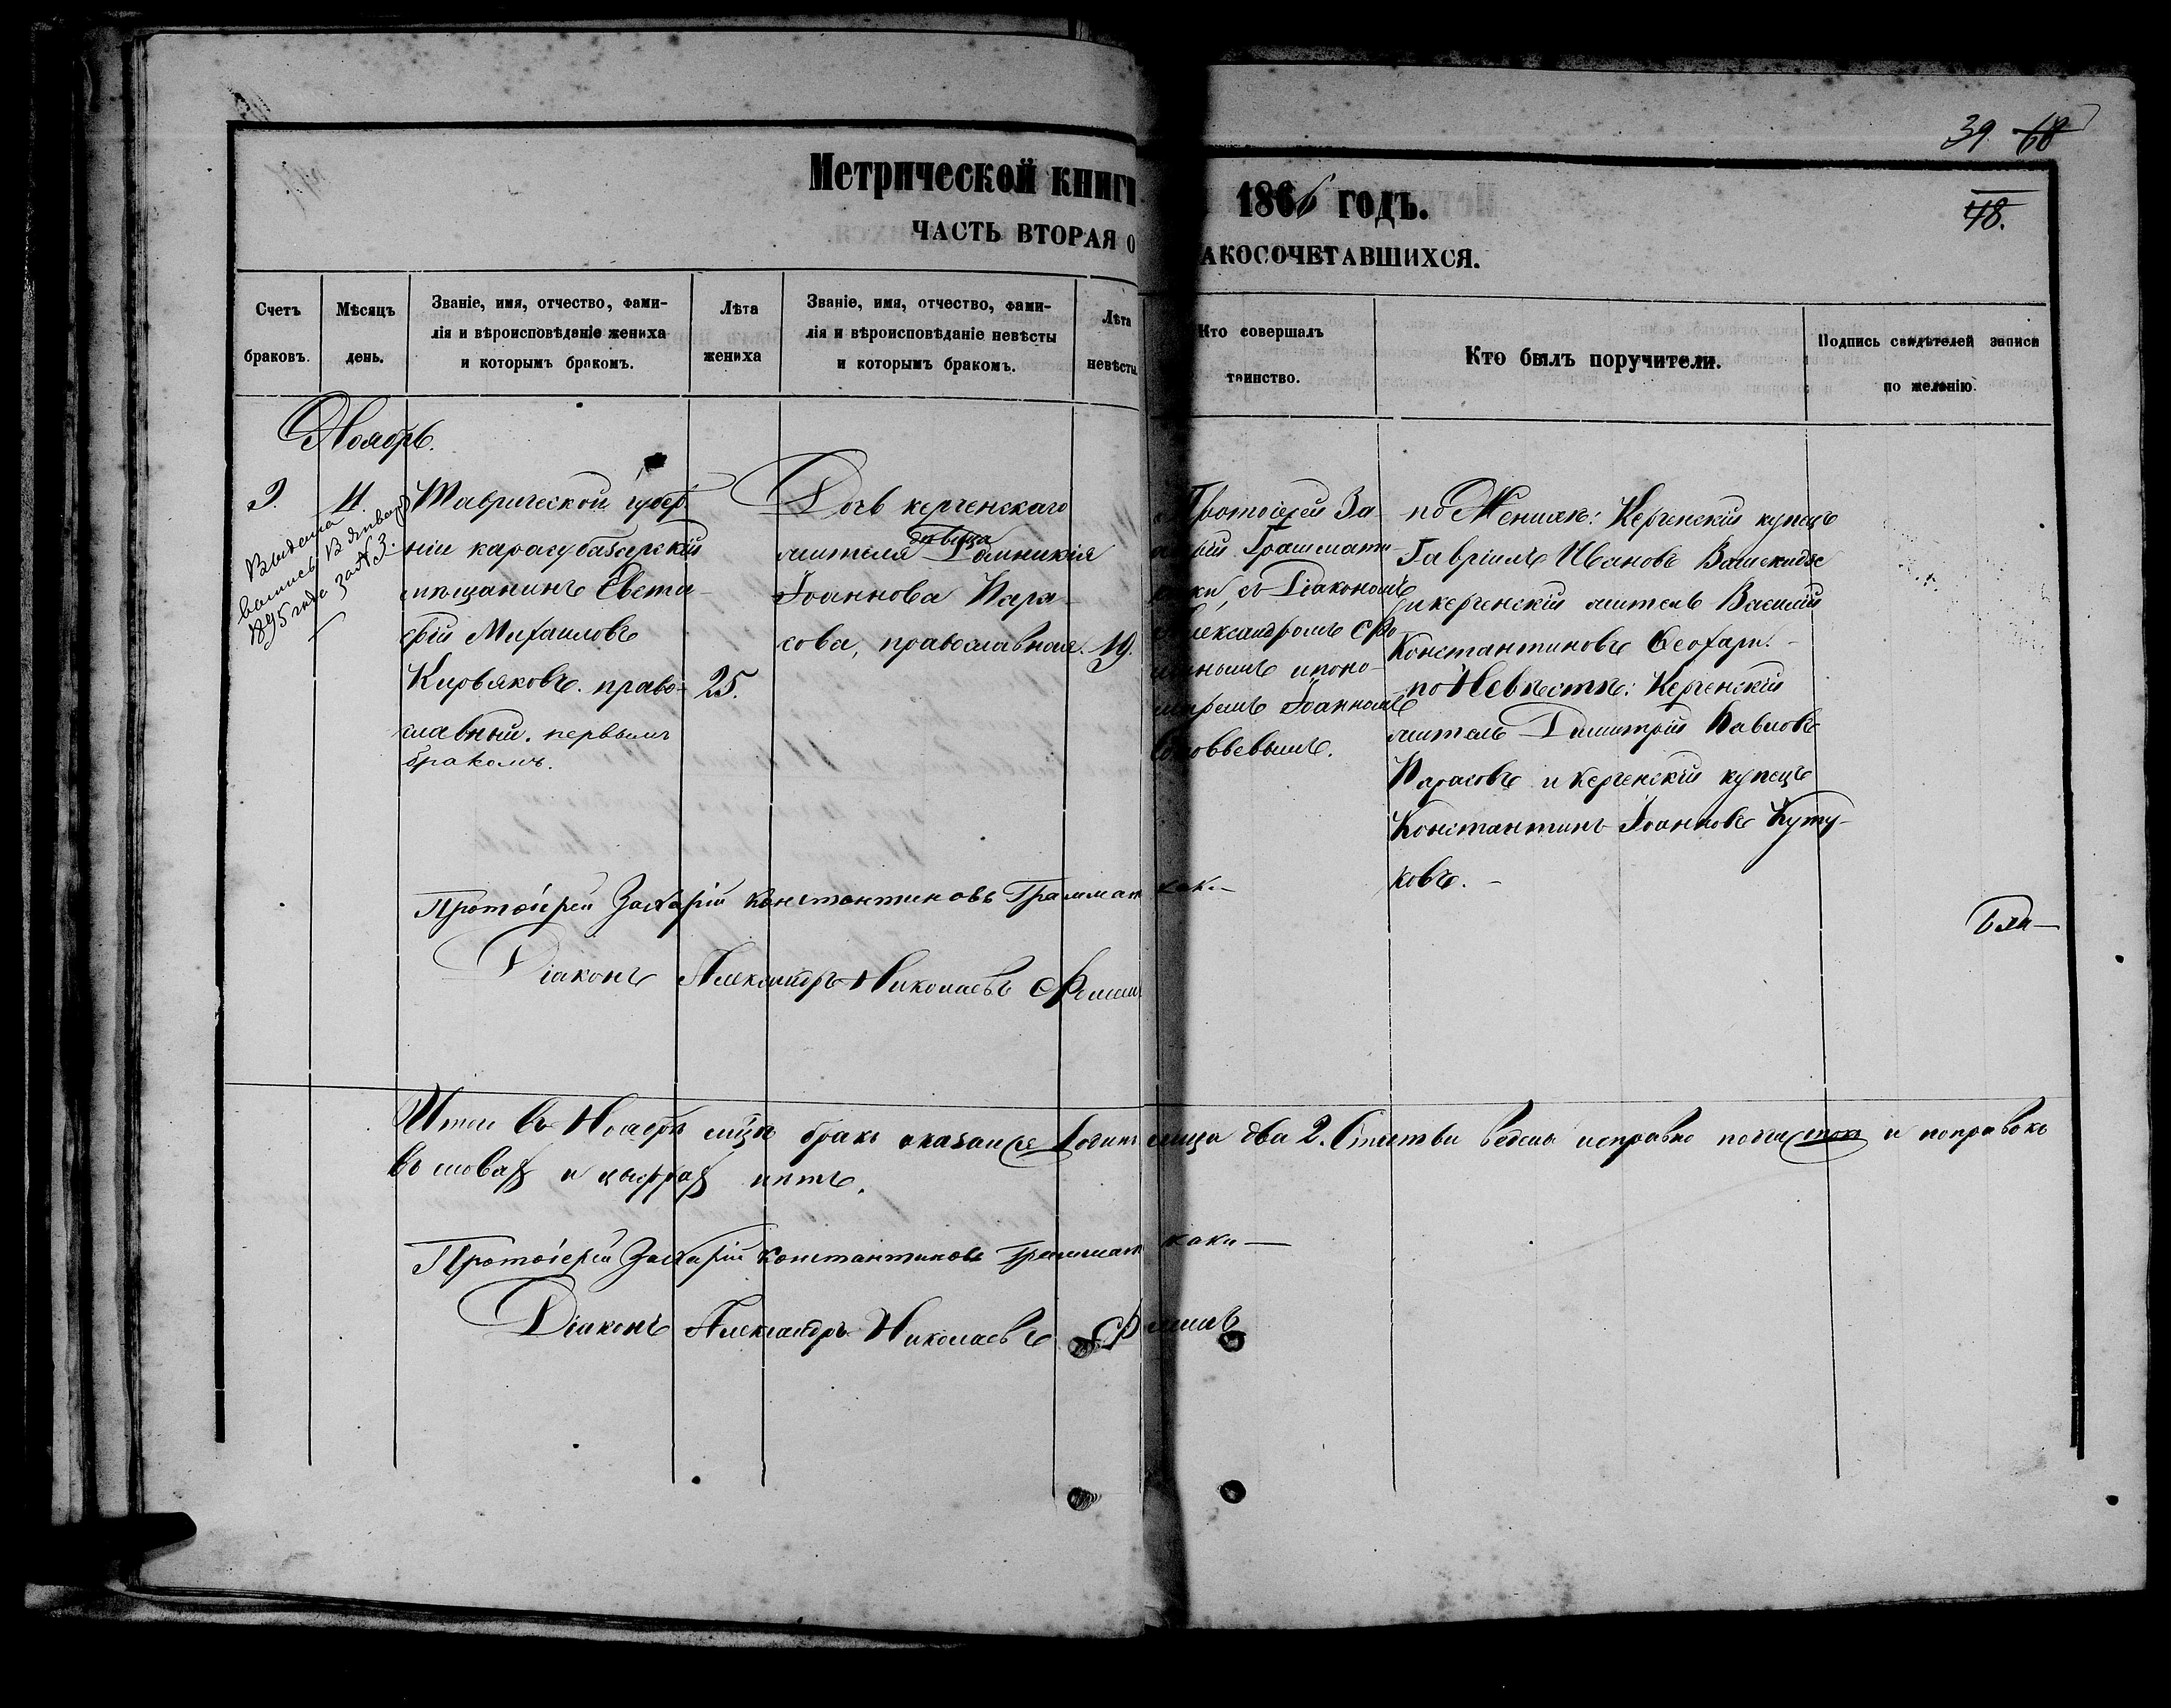 39. 68
48.
Метрической книги 1866 годъ.
ЧАСТЬ ВТОРАЯ О АКОСОЧЕТАВШИХСЯ.
Счетъ браковъ.
Мѣсяцъ день.
Званіе, имя, отчество, фами-
лія и вѣроисповѣданіе жениха
и которымъ бракомъ.
Лѣта жениха
Званіе, имя, отчество, фами-
лія и вѣроисповѣданіе невѣсты
и которымъ бракомъ.
Лѣта невѣсты
Кто совершалъ
таинство.
Кто былъ поручители.
Подпись свидѣтелей записи
по желанію.
Ноябрь.
9.
Выдена
выпись В Январѣ
1895 года за № 3.
4.
Таврической губер-
ніи карасубазарскій
мѣщанинъ Евста-
фій Михаиловъ
Кировяковъ. право-
славный. первымъ
бракомъ.
25.
Дочь керченскаго
жителя дѣвица Домникія
Іоаннова Пара-
сова, православная.
19.
Протоіерей За
арій Граммати
каки, съ Діакономъ
Александромъ Фо
минымъ и поно-
маремъ Іоанномъ
Соловьевымъ.
по Женихѣ: Керченскій купецъ
Гавріилъ Ивановъ
и керченскій житель Василій
Константиновъ Феохари. -
по Невѣстѣ: Керченскій
житель Димитрій Павловъ
Парасовъ и керченскій купецъ
Константинъ Іоанновъ Куту-
ковъ. -
Протоіерей Захарій Константиновъ Граммат каки
Діаконъ Александръ Николаевъ Фомин
Бла-
Итого въ Ноябрѣ мцѣ бракъ оказался Одинъ лица два 2. Статьи ведены исправно почистокъ и поправокъ
въ словах и цыфрах нѣтъ.
Протоіерей Захарій Константиновъ Граммат каки
Діаконъ Александръ Николаевъ Ф минъ